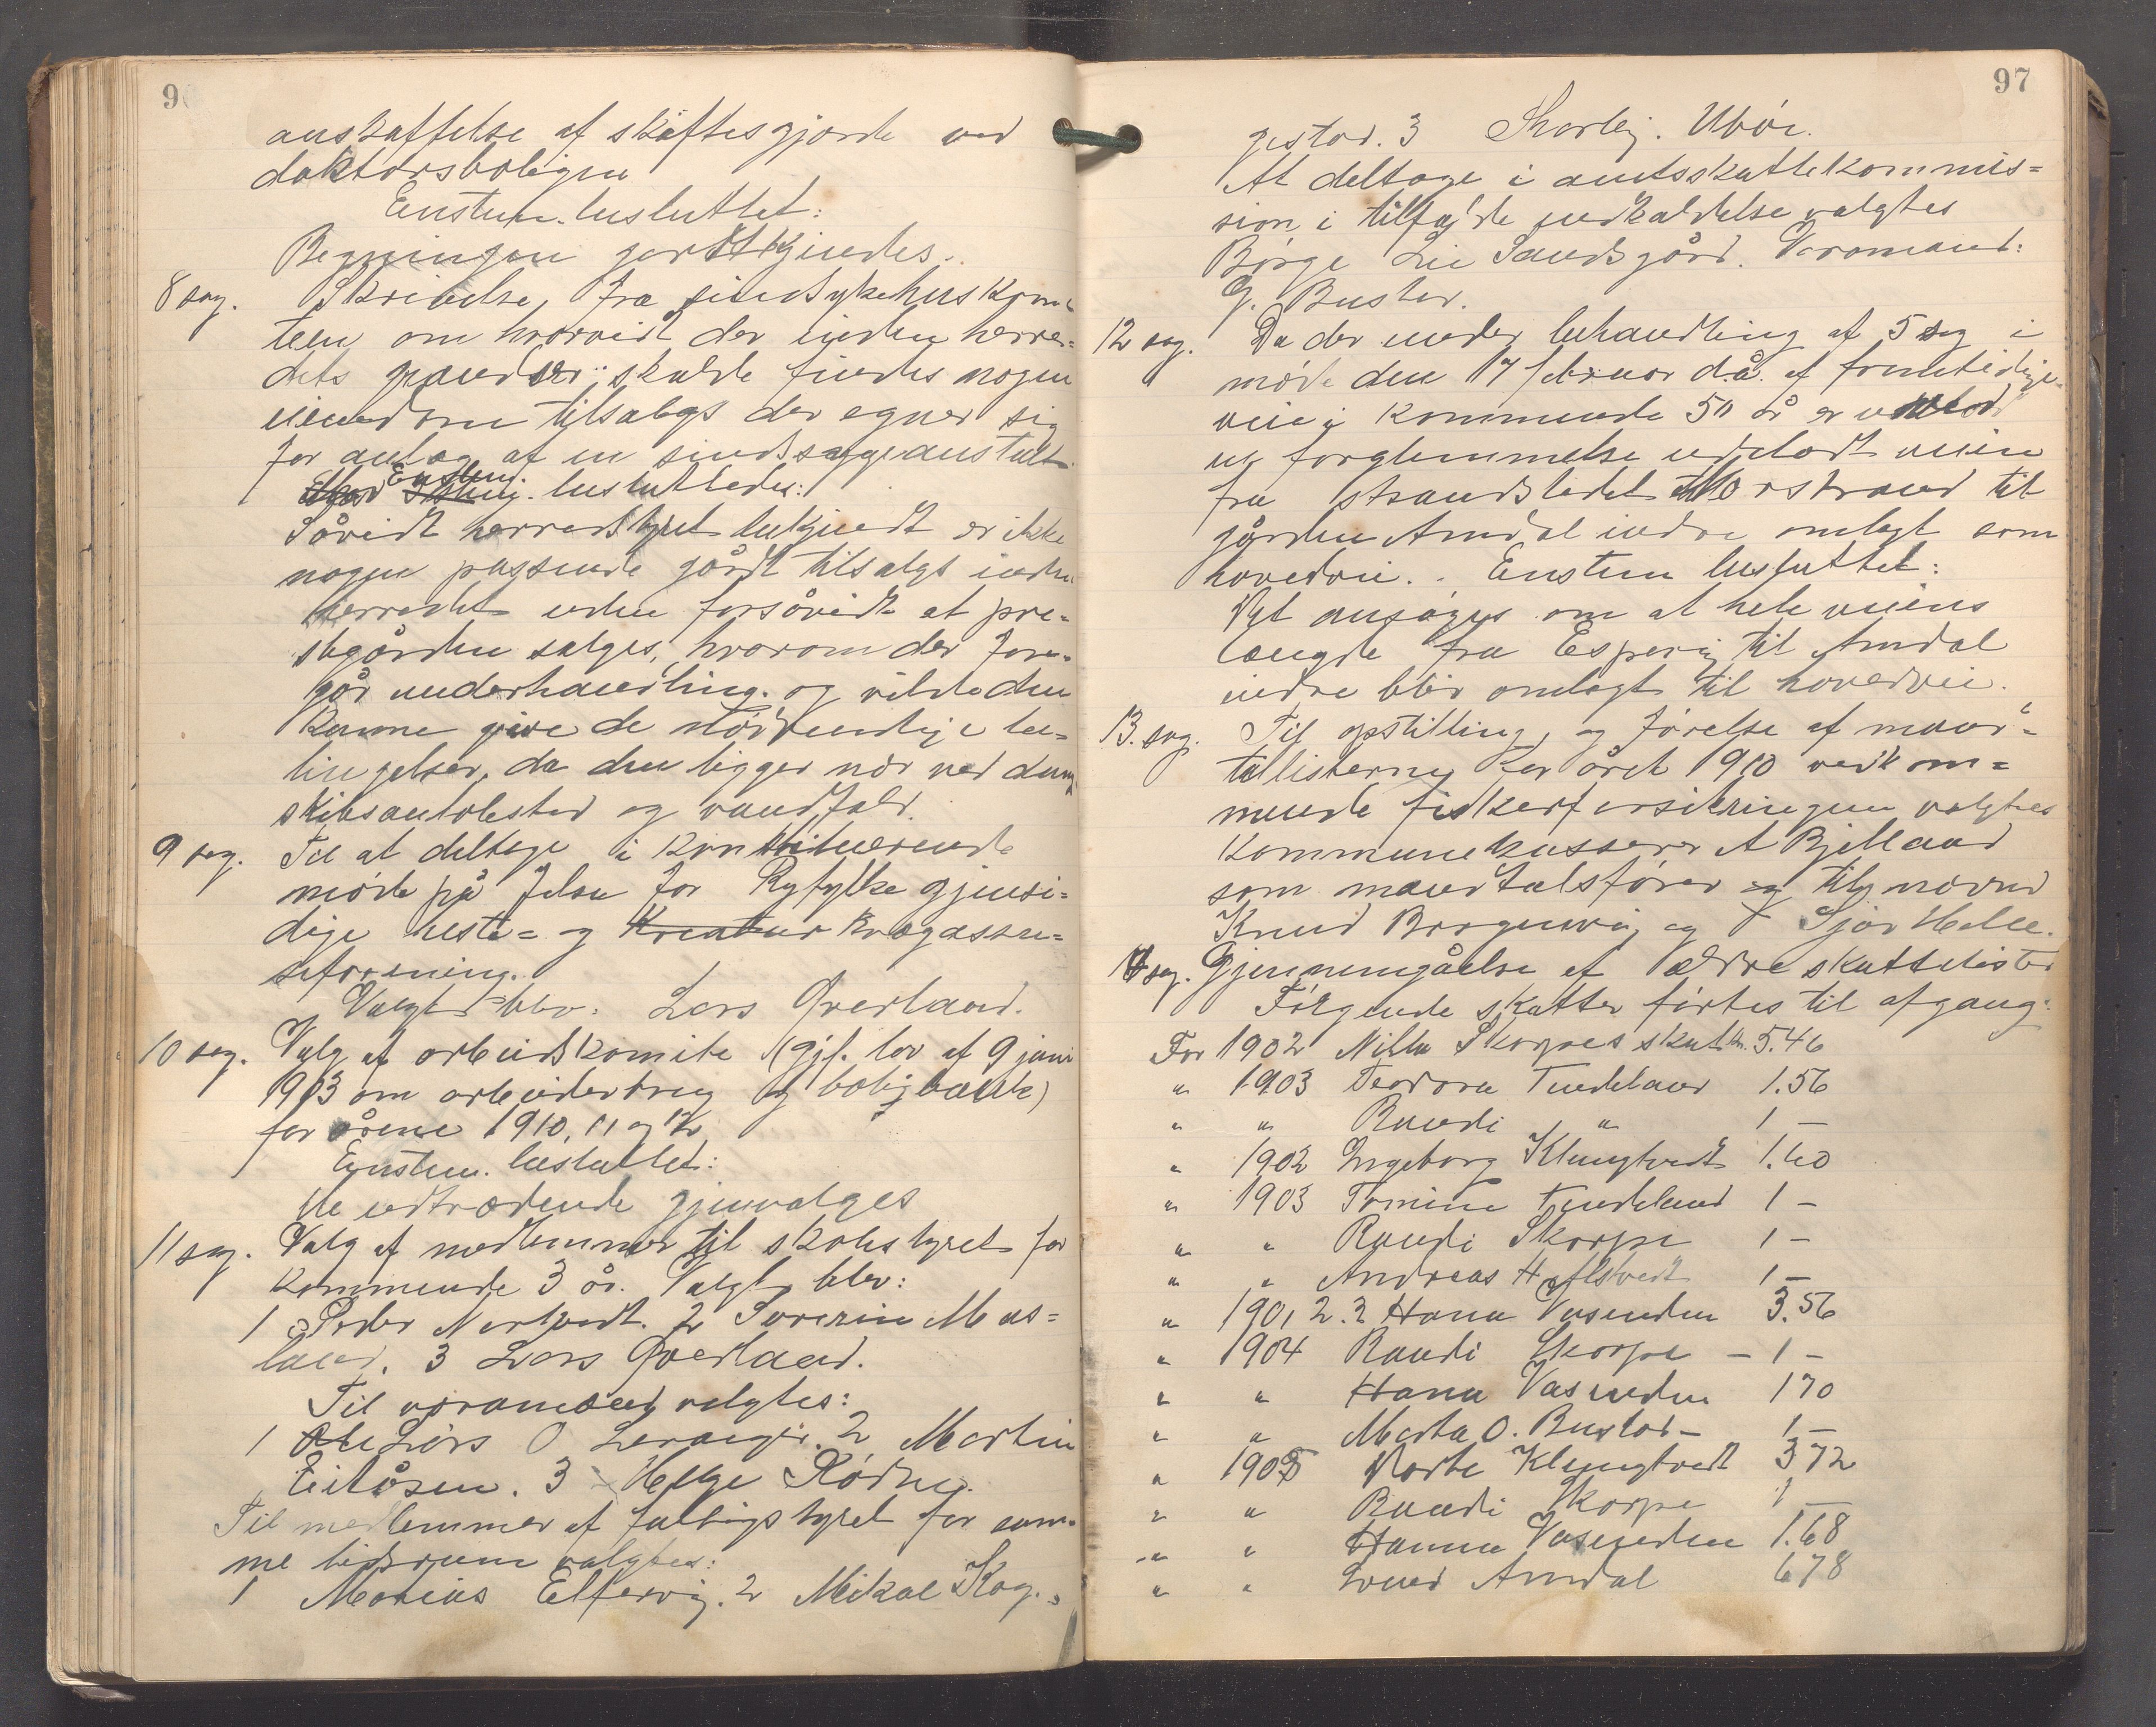 96
anskaffelse af skiftesgjærde ved
doktorsboligen
Enstem. besluttet:
Regningen godtkjendes.
8 sag. Skrivelse fra sindsykehuskomi
teen om hvorvidt der inden herre-
dets grændser skulde findes nogen
eiendom tilsalgs der egner sig
for anlæg af en sindssygeanstalt.
Enstem. besluttedes:
Såvidt herredstyret bekjendt er ikke
nogen passende gård tilsalgs inden
herredet uden forsåvidt at pre-
stegården sælges, hvorom der fore-
går underhandling og vilde den
kunne give de nødvendige be-
tingelser, da den ligger nær ved damp
skibsanløbested og vandfald.
9 sag. Til at deltage i konstituerende
møde på Jelsa for Ryfylke gjensi-
dige heste- og Kreatur kvægassu-
seforening.
Valgt blev: Lars Qverland.
10 sag. Valg af arbeidskomite (gjf. lov af 9 juni
1903 om arbeiderbrug og boligbank)
for årene 1910, 11 og 12
Enstem. besluttet:
De udtrædende gjenvalges
11 sag. Valg af medlemmer til skolestyret for
kommende 3 år. Valgt blev:
1 Peder Nortvedt. 2 Severin Mæs-
land. 3 Lars Qverland.
Til varamænd valgtes:
1 Ole Lars O Leranger. 2 Martin
Eilåsen. 3 Helge Rødne.
Til medlemmer af fattigstyret for sam-
me tidsrum valgtes:
1 Matias Eltervig. 2 Mikal Kog-
97
gestad. 3 Ubør.
At deltage i amtsskattekommis-
sion i tilfælde indkaldelse valgtes
Børge Lie Sandsgård. Varamand:
G. Bustad.
12 sag. Da der under behandling af 5 sag i
møde den 17 februar d.å. af fremtidige
veie i kommende 50 år er ved
en forglemmelse udeladt veien
fra strandstedet Norstrand til
gården Amdal indre omlagt som
hovedvei. Enstem besluttet:
Det ansøges om at hele veiens
længde fra Espevig til Amdal
indre blir omlagt til hovedvei.
13. sag. Til opstilling og førelse af mand-
tallisterne for året 1910 vedkom-
mende fiskerforsikringen valgtes
kommunekasserer A Bjelland
som mandtalsfører og tilsynsmænd
Knud Brogenvig og Sjur Helle.
14 sag. Gjennemgåelse af ældre skattelister
Følgende skatter førtes til afgang:
For 1902 Nilla Skorpes skat kr. 5.46
" 1903 Teodora Tindeland 1.56
" " Randi " 1 –
" 1902 Ingeborg Klungtvedt 1.60
" 1903 Tomine Tindeland 1 –
" " Randi Skorpe 1 –
" " Andreas H Alsvedt 1 –
" 1901 2. 3 Hana Vasenden 3.56
" 1904 Randi Skorpe – 1 –
" " Hana Vasenden 1 70
" " Marta O. Bustad – 1 –
" 1905 Marte Klungtvedt 3 72
" " Randi Skorpe 1 –
" " Hanna Vasenden 1.68
" " Amdal 6 78